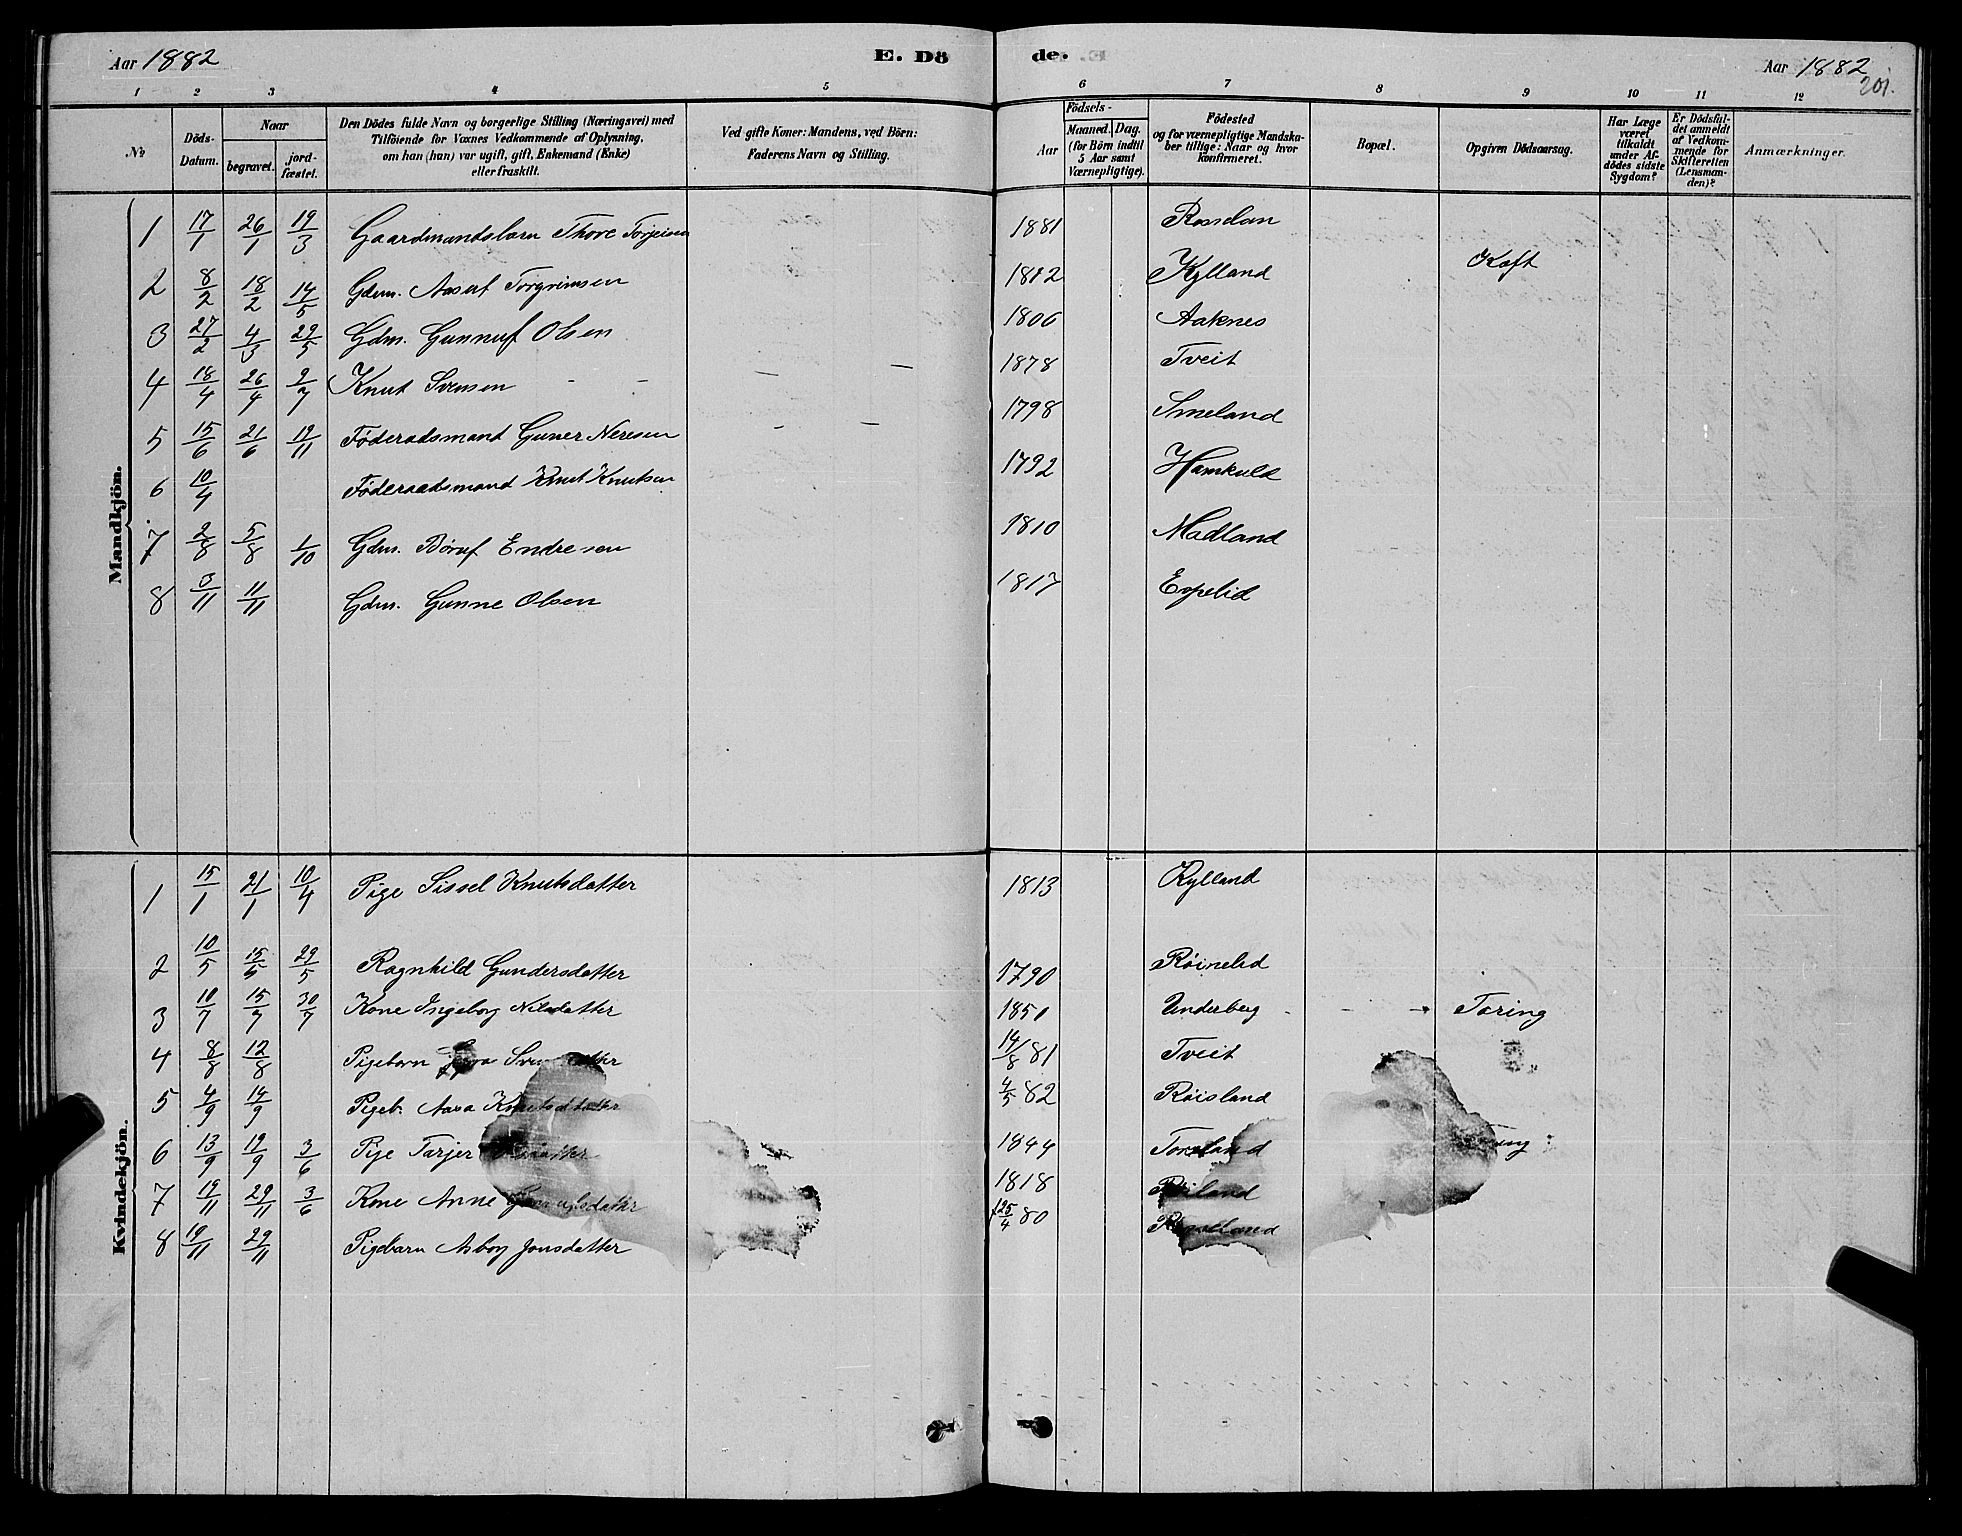 Aar 1882 E. Dö
de. Aar 1882
201.
1 2 3 4 5 6 7 8 9 10 11 12
No
Döds-Datum.
Naar
begravet.
jord-fæstet.
Den Dödes fulde Navn og borgerlige Stilling (Næringsvei) med
Tilföiende for Voxnes Vedkommende af Oplysning,
om han (hun) var ugift, gift, Enkemand (Enke)
eller fraskilt.
Ved gifte Koner: Mandens, ved Börn:
Faderens Navn og Stilling.
Födsels-
Aar
Maaned. Dag.
(for Börn indtil
5 Aar samt
Værnepligtige).
Födested
og for værnepligtige Mandska-
ber tillige: Naar og hvor
konfirmeret.
Bopæl.
Opgiven Dödsaarsag.
Har Læge
været
tilkaldt
under Af-
dödes sidste
Sygdom?
Er Dödsfal-
det anmeldt
af Vedkom-
mende for
Skifteretten
(Lensman-
den)?
Anmærkninger.
Mandkjön.
1 17/1 26/1 19/3 Gaardmandsbarn Thore Torjeisen 1881
2 8/2 18/2 14/5 Gdm. Aasut Torgrimsen 1812 Kylland Kræft
3 27/2 4/3 29/5 Gdm. Gunnuf Olsen 1806 Aaknes
4 18/4 26/4 9/7 Knut Svensen - - - - 1878 Tveit
5 15/6 21/6 19/11 Föderadsmand Guner Neresen - - 1798 Smeland
6 10/4 Föderaadsmand Knut Knutsen 1792 Hamkuld
7 2/8 5/8 1/10 Gdm. Böruf Endresen 1810 Madland
8 3/11 11/11 Gdm. Gunne Olsen 1817 Espelid
Kvindekjön.
1 15/1 21/1 10/4 Pige Sissel Knutsdatter 1813 Kylland
2 10/5 15/5 29/5 Ragnhild Gundersdatter 1790 Röinelid
3 10/7 15/7 30/7 Kone Ingeborg Nilsdatter 1851 Underberg - - Tæring
4 8/8 12/8 Pigebarn 14/8 81 Tveit "
5 4/9 14/9 Pigeb. Aasa Knutsdatter 4/5 82 Röisland
6 13/9 19/9 3/6 Pige Tarjer 1844
7 19/11 29/11 3/6 Kone Anne 1818
8 19/11 29/11 Pigebarn Asbor Jonsdatter 25/4 80